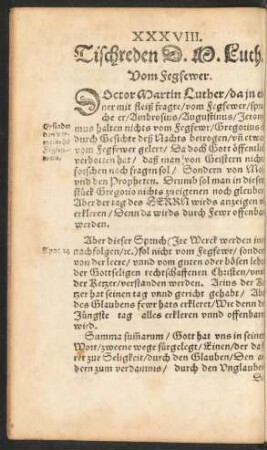 XXXVIII.
Tischreden D. M. Luth.
Vom Fegfewer.
DOctor Martin Luther/da jn ei
ner mit fleiß fragte/vom Fegfewer/spra
che er/Ambrosius/Augustinus/Jerony
mus halten nichts vom Fegfewr/Gregorius is
durch Gesichte deß Nachts betrogen/vñ etwas
vom Fegfewer gelert/Da doch Gott öffentlich
verbotten hat/daß man von Geistern nichts
forschen noch fragen sol/Sondern von Mose
vnd den Propheten. Drumb sol man in diesem
stück Gregorio nichts zueignen noch gleuben
Aber der tag des HERRN wirds anzeigen vñ
erkleren/Denn da wirds durch Fewr offenbar
werden.
Apoc. 14
Aber dieser Spruch (Jre Werck werden jnen
nachfolgen/ꝛc.) sol nicht vom Fegfewr/sondern
von der leere/vnnd vom guten oder bösen leben
der Gottseligen rechtschaffenen Christen/vnnd
der Ketzer/verstanden werden. Arius der Ke
tzer hat seinen tag vnnd gericht gehabt/Aber
des Glaubens fewr hats erkleret/Wie denn der
Jüngste tag alles erkleren vnnd offenbaren
wird.
Summa sum̃arum/Gott hat vns in seinem
Wort/zweene wege fürgelegt/Einen/der da
rer zur Seligkeit/durch den Glauben/Den an
dern zum verdamnis/durch den Vnglauben